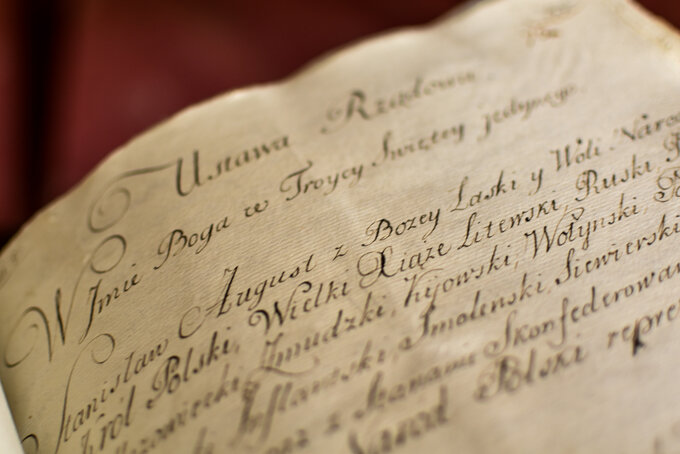 Ustawa Rządowa.
W Jmie Boga w Troycy Swiętey jedynego.
Stanisław August z Bozey Łaski y Woli Narod
Król Polski, Wielki Xiąże Litewski, Ruski,
Mazowiecki, Zmudzki, Kijowski, Wołynski,
Inflantski, Smolenski, Siewierski
z Stanami Skonfederowan
Naród Polski repre